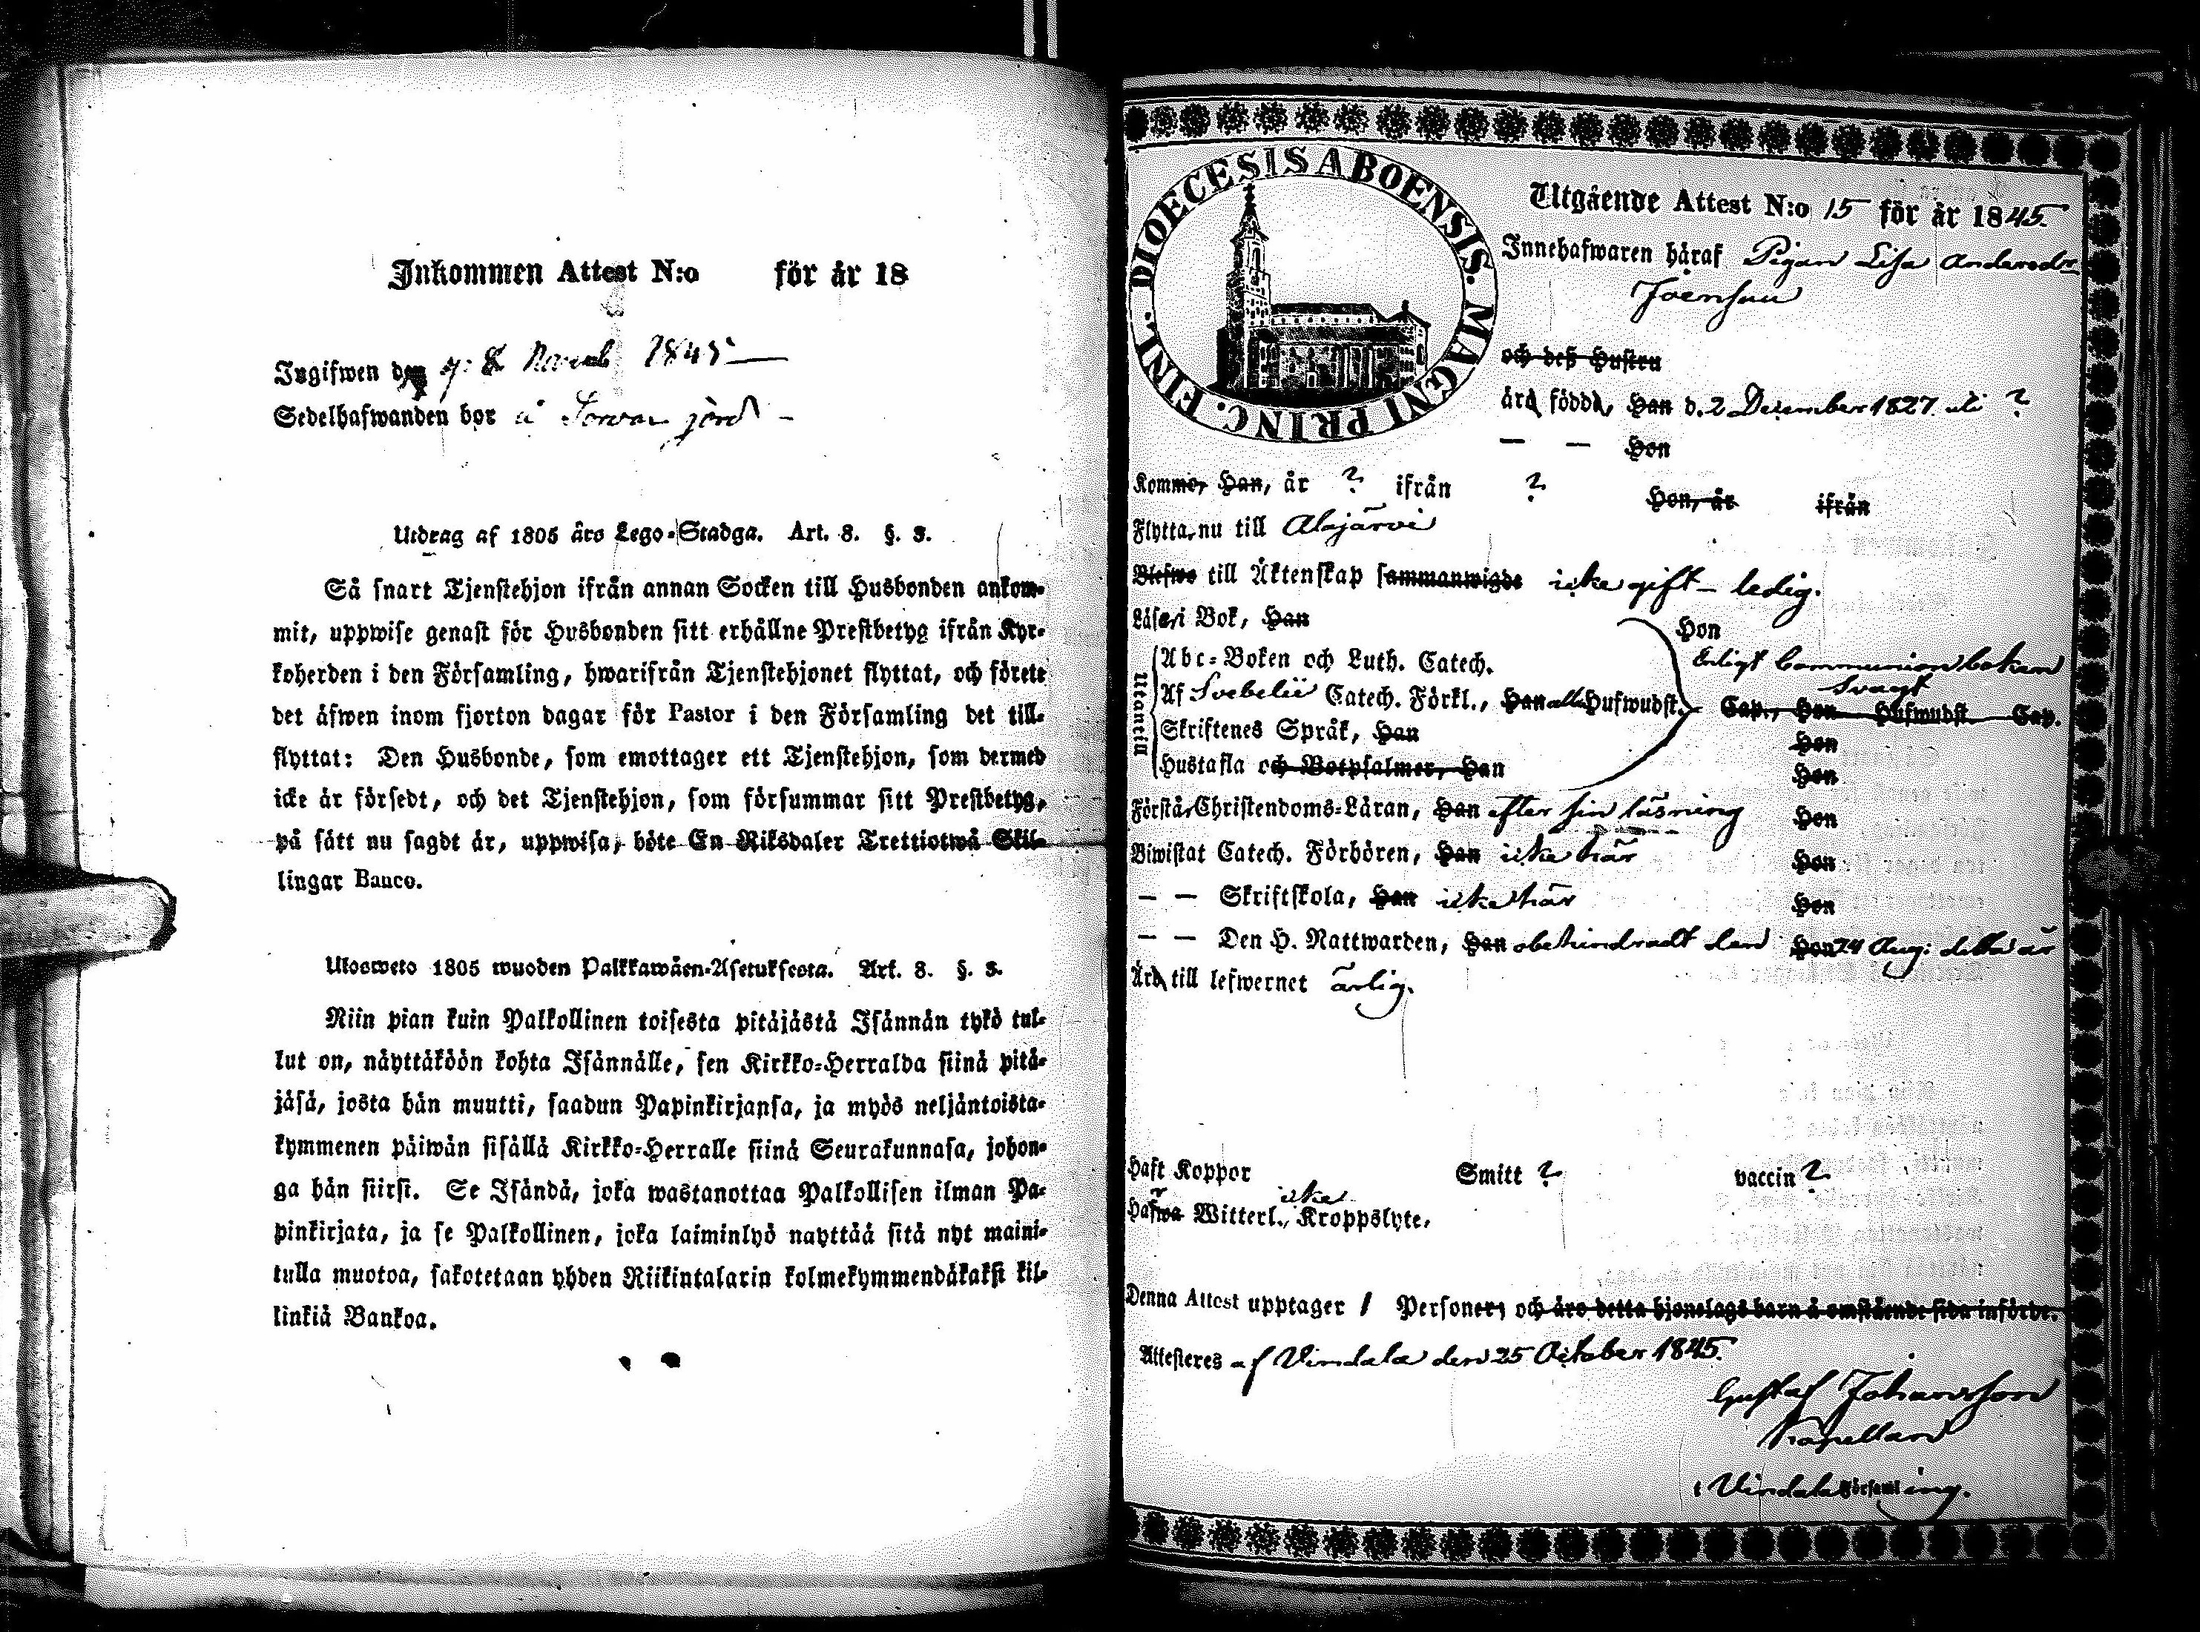 Inkommen Attest N:o för år 18
Ingifwen den 8 Novemb 1845
Sedelhafwanden bor å jord
Utdrag af 1805 års Lego-Stadga. Art. 8. §. 3.
Så snart Tjenstehjon ifrån annan Socken till Husbonden ankom-
mit, uppwise genast för Husbonden sitt erhållne Prestbetyg ifrån Kyr-
koherden i den Församling, hwarifrån Tjenstehjonet flyttat, och förete
det äfwen inom fjorton dagar för Pastor i den Församling det till-
flyttat: Den Husbonde, som emottager ett Tjenstehjon, som dermed
icke är försedt, och det Tjenstehjon, som försummar sitt Prestbetyg,
på sätt nu sagdt är, uppwisa, böte En Riksdaler Trettiotwå Skil-
lingar Banco.
Ulosweto 1805 wuoden Palkkawäen-Asetuksesta. Art. 8. §. 3.
Niin pian kuin Palkollinen toisesta pitäjästä Isännän tykö tul-
lut on, näyttäköön kohta Isännälle, sen Kirkko-Herralda siinä pitä-
jäsä, josta hän muutti, saadun Papinkirjansa, ja myös neljäntoista-
kymmenen päiwän sisällä Kirkko-Herralle siinä Seurakunnasa, johon-
ga hän siirsi. Se Isändä, joka wastanottaa Palkollisen ilman Pa-
pinkirjata, ja se Palkollinen, joka laiminlyö nayttää sitä nyt maini-
tulla muotoa, sakotetaan yhden Riikintalarin kolmekymmendäkaksi kil-
linkiä Bankoa.
DIOECESIS ABOENSIS. MAGNI PRINC. FINL.
Utgående Attest N:o 15 för år 1845.
Innehafwaren häraf Pigan Lisa Andersdr
Joensuu
och deß Hustru
ära födda, Han d. 2 December 1827. uti ?
— — Hon
Kommo, Han, år ? ifrån ? Hon, år ifrån
Flytta nu till Alajärvi
Blefwo till Äktenskap sammanwigde icke gift – ledig.
Läser i Bok, Han Hon
Utantill
Abc-Boken och Luth. Catech. Enligt Communionboken
svagt
Af Svebelii Catech. Förkl., Han alla Hufwudst. Cap., Hon Hufwudst. Cap.
Skriftenes Språk, Han Hon
Hustafla och Botpsalmer, Han Hon
Förstår Christendoms-Läran, Han efter sin läsning Hon
Biwistat Catech. Förhören, Han icke här Hon
— — Skriftskola, Han icke här Hon
— — Den H. Nattwarden, Han obehindradt den Hon 24 Aug: detta år
Ära till lefwernet ärlig.
Haft Koppor Smitt ? vaccin ?
icke
Hafwa Witterl. Kroppslyte.
Denna Attest upptager 1 Personer, och äro detta hjonelags barn å omstående sida införde.
Attesteres af Vindala den 25 October 1845.
Gustaf Johansson
Kapellan
i Vindala Församling.